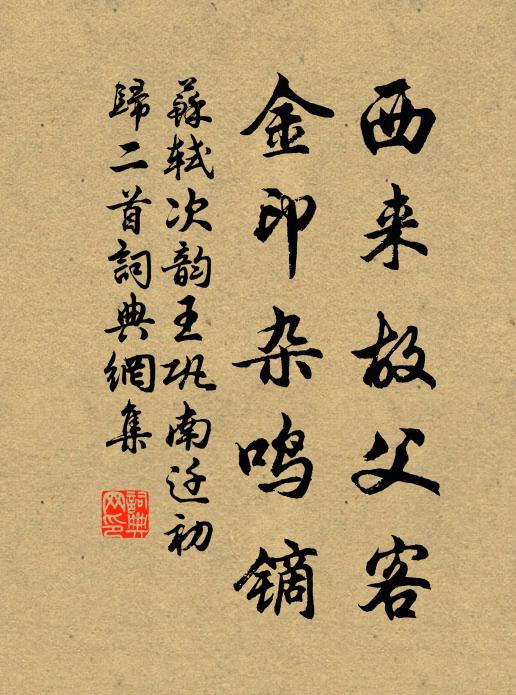 西来故父客
金印杂鸣镝
蘇轼次韵王巩南迁初
歸二首詞典網集
詞典网印